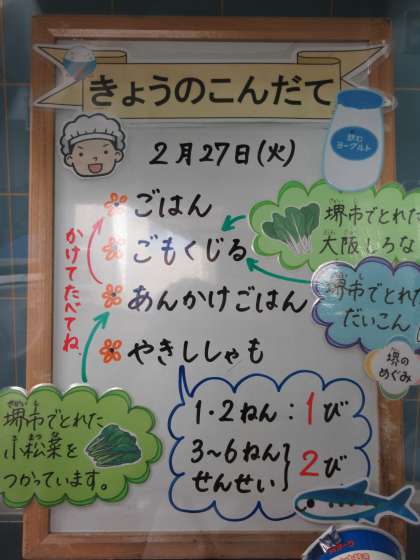 きょうのこんだて
飲む
ヨーグルト
2月27日(火)
ごはん
ごもくじる
あんかけごはん
やきししゃも
かけてたべてね。
堺市でとれた
大阪しろな
堺市でとれた
だいこん
堺の
めぐみ
堺市でとれた
小松菜を
つかっています。
1・2ねん:1び
3~6ねん
せんせい}2び